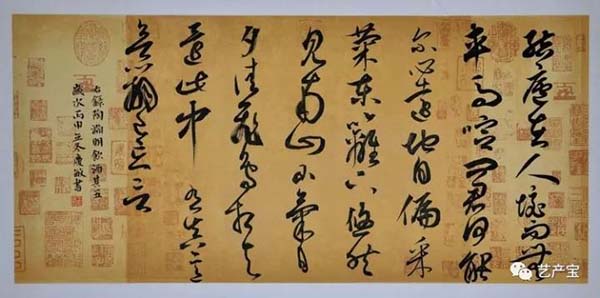 結廬在人境而無
車馬喧問君何能
尔心遠地自偏采
菊東籬下悠然
見南山山氣日
夕佳飛鳥相與
還此中有真意
欲辨已忘言
右錄陶淵明飲酒其五
歲次丙申立冬書
艺产宝